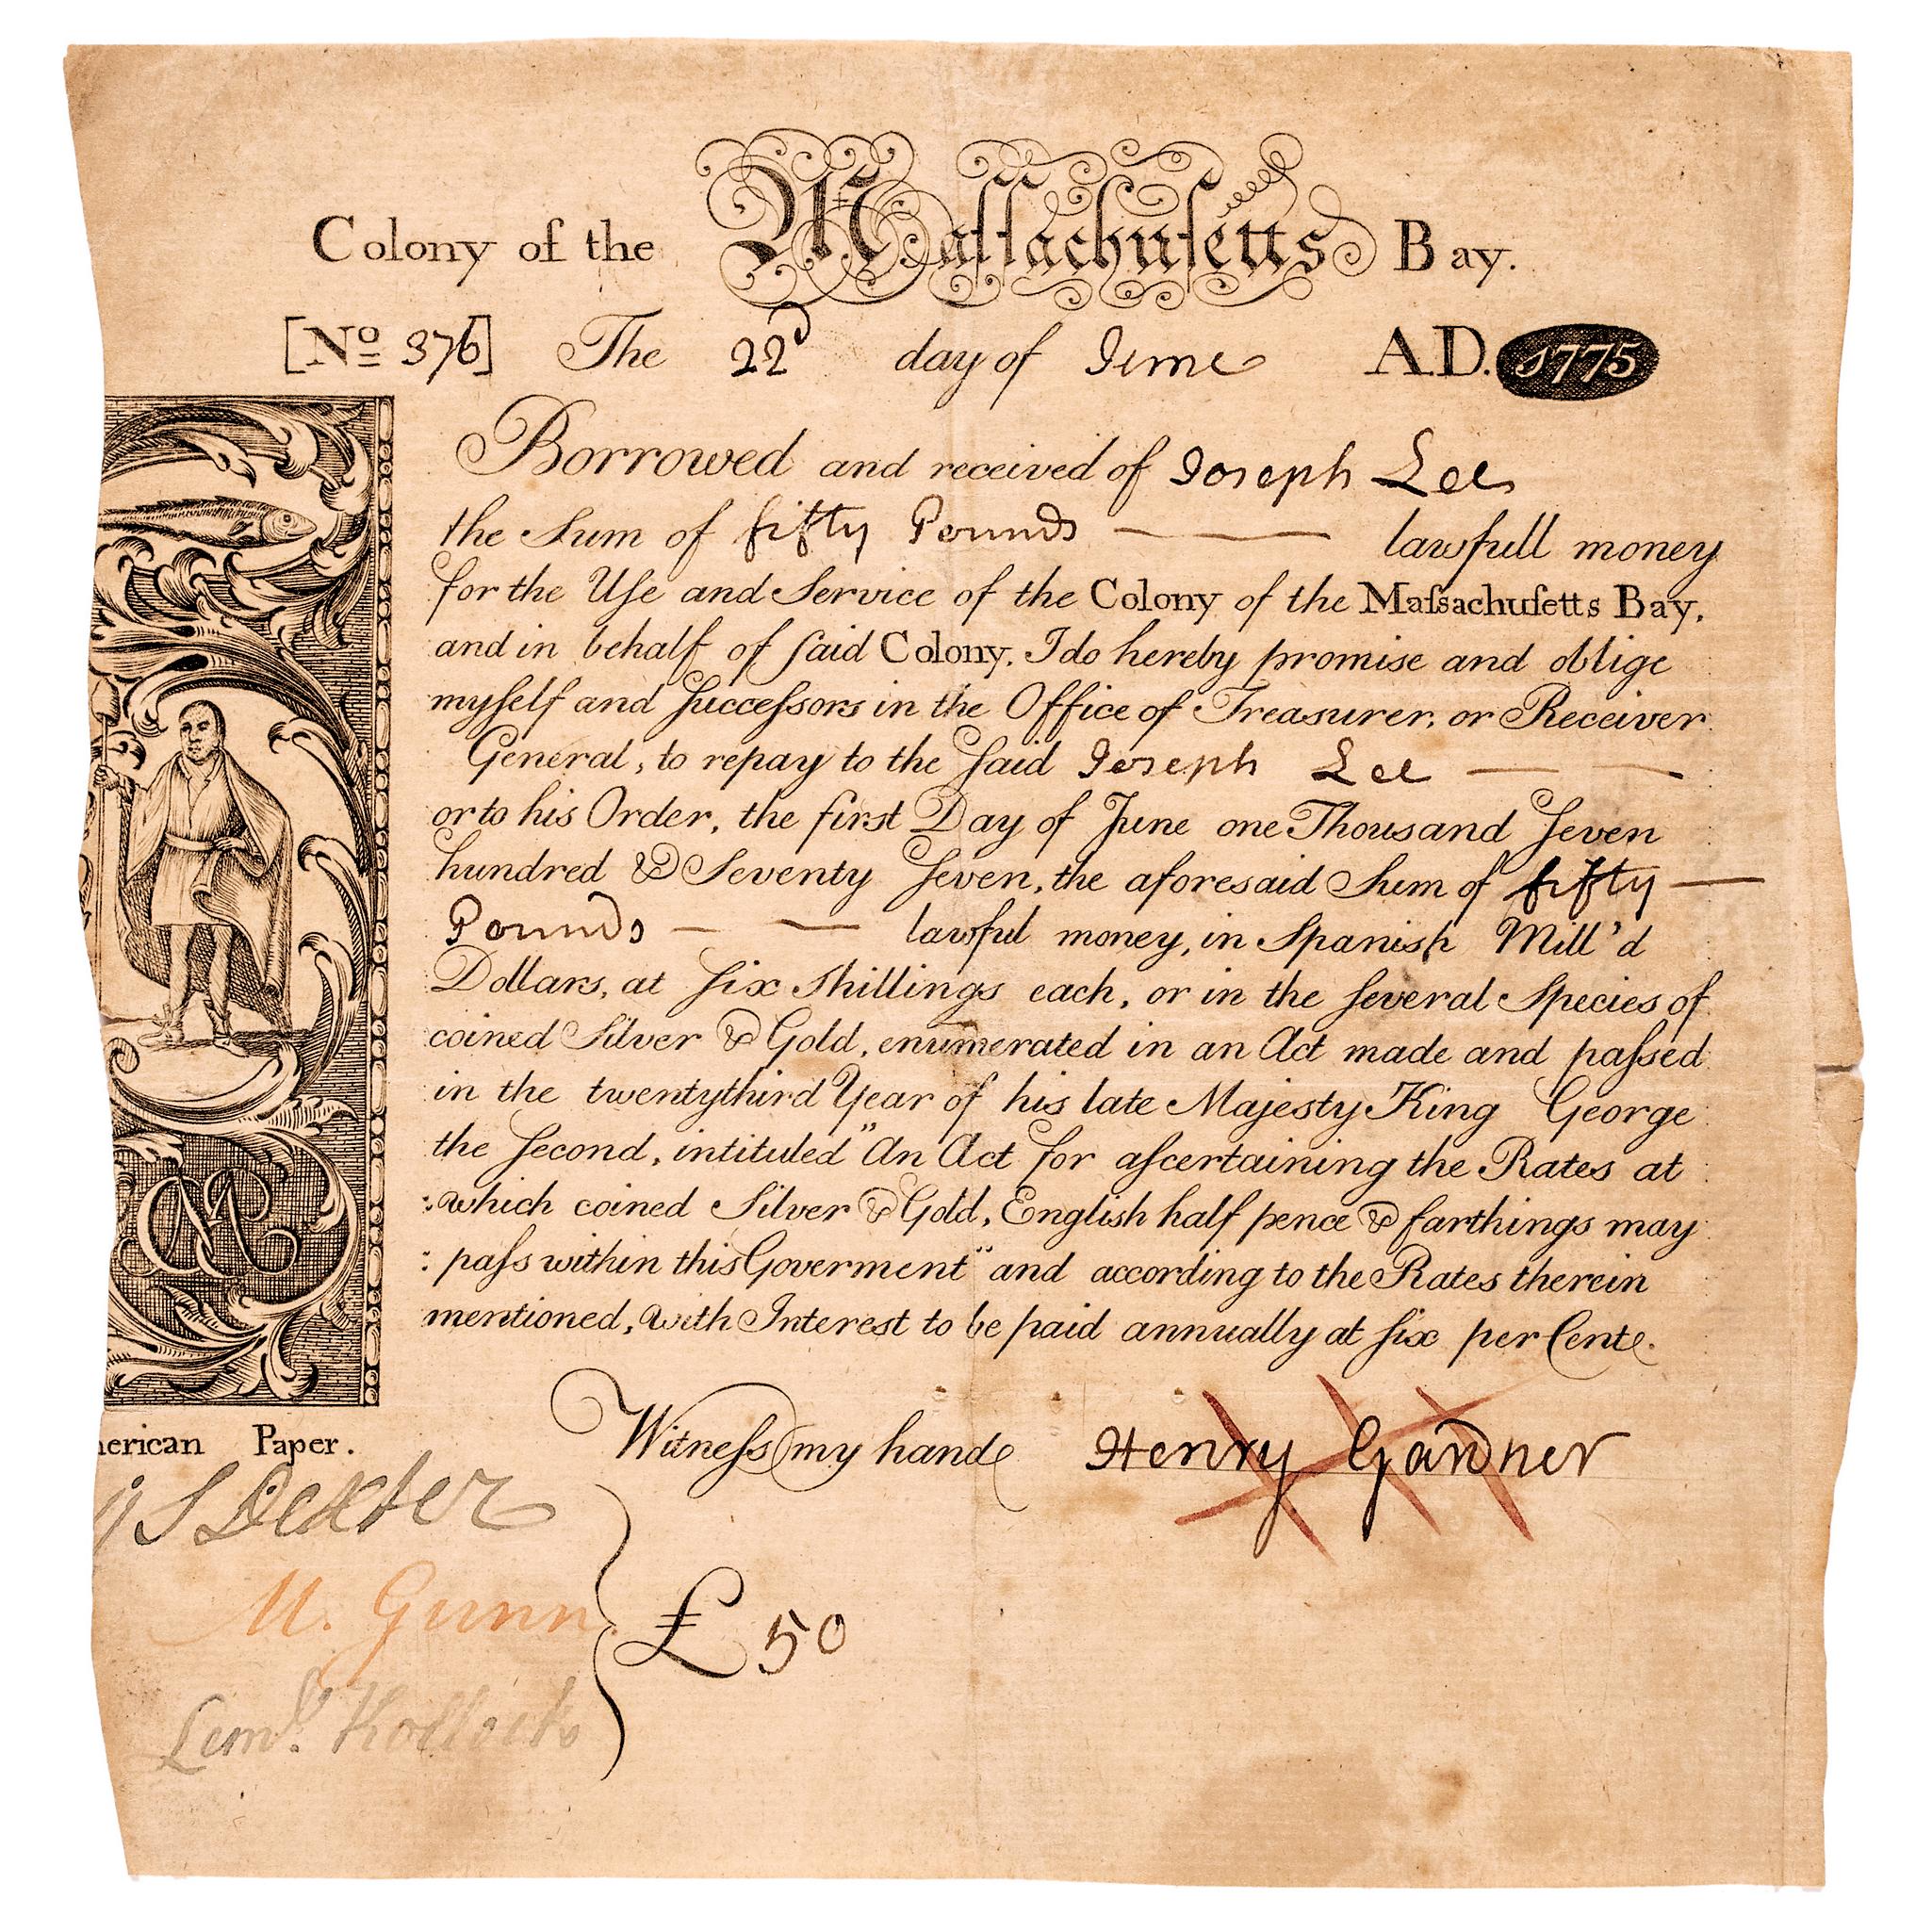 Colony of the Massachusetts Bay.
[No 376] The 22d day of June A.D. 1775
Borrowed and received of Joseph Lee
the Sum of fifty Pounds — — lawfull money
for the Use and Service of the Colony of the Massachusetts Bay,
and in behalf of said Colony. I do hereby promise and oblige
myself and Successors in the Office of Treasurer, or Receiver
General, to repay to the said Joseph Lee — —
or to his Order, the first Day of June one Thousand Seven
hundred & Seventy Seven, the aforesaid Sum of fifty —
Pounds — — lawful money, in Spanish Mill'd
Dollars, at six Shillings each, or in the several Species of
coined Silver & Gold, enumerated in an Act made and passed
in the twentythird Year of his late Majesty King George
the Second, intituled "An Act for ascertaining the Rates at
: which coined Silver & Gold, English half pence & farthings may
: pass within this Goverment" and according to the Rates therein
mentioned, with Interest to be paid annually at six per Cent.
Witness my hand Henry Gardner
erican Paper.
S Dexter
M. Gunn
£ 50
Leml. Kollock